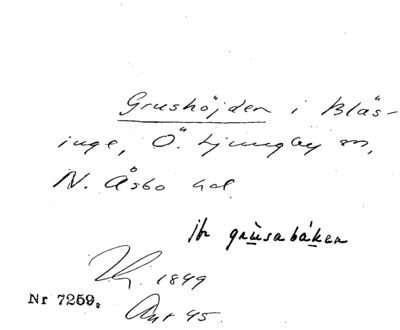 Grushöjden i Bläs-
inge, Ö. Ljungby sn,
N. Åsbo hd.
jfr grùsabáken
1849
Nr 7259.
45.